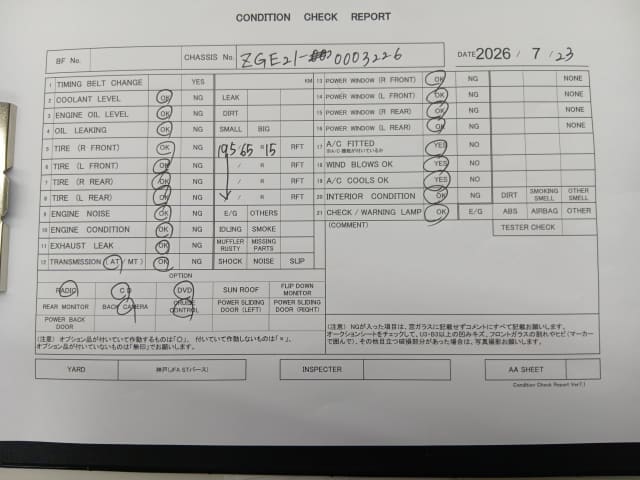 CONDITION CHECK REPORT
BF No. CHASSIS No. ZGE21- 0003226 DATE 2026 / 7 / 23
1 TIMING BELT CHANGE YES KM
2 COOLANT LEVEL OK NG LEAK
3 ENGINE OIL LEVEL OK NG DIRT
4 OIL LEAKING OK NG SMALL BIG
5 TIRE (R FRONT) OK NG 195 / 65 R 15 RFT
6 TIRE (L FRONT) OK NG / R RFT
7 TIRE (R REAR) OK NG / R RFT
8 TIRE (L REAR) OK NG / R RFT
9 ENGINE NOISE OK NG E/G OTHERS
10 ENGINE CONDITION OK NG IDLING SMOKE
11 EXHAUST LEAK OK NG MUFFLER RUSTY MISSING PARTS
12 TRANSMISSION (AT / MT) OK NG SHOCK NOISE SLIP
OPTION
RADIO CD DVD SUN ROOF FLIP DOWN MONITOR
REAR MONITOR BACK CAMERA CRUISE CONTROL POWER SLIDING DOOR (LEFT) POWER SLIDING DOOR (RIGHT)
POWER BACK DOOR
(注意) オプション品が付いていて作動するものは「○」、付いていて作動しないものは「×」、
オプション品が付いていないものは「無印」でお願いします。
13 POWER WINDOW (R FRONT) OK NG NONE
14 POWER WINDOW (L FRONT) OK NG NONE
15 POWER WINDOW (R REAR) OK NG NONE
16 POWER WINDOW (L REAR) OK NG NONE
17 A/C FITTED YES NO
18 WIND BLOWS OK YES NO
19 A/C COOLS OK YES NO
20 INTERIOR CONDITION OK NG DIRT SMOKING SMELL OTHER SMELL
21 CHECK / WARNING LAMP OK E/G ABS AIRBAG OTHER
(COMMENT) TESTER CHECK
(注意) NGが入った項目は、窓ガラスに記載せずコメントにすべて記載お願いします。
オークションシートをチェックして、U3・B3以上の凹みキズ、フロントガラスの割れやヒビ(マーカー
で囲んで)、その他目立つ破損部分があった場合は、写真撮影お願いします。
YARD 神戸(JFA STバース) INSPECTER AA SHEET
Condition Check Report Ver7.1